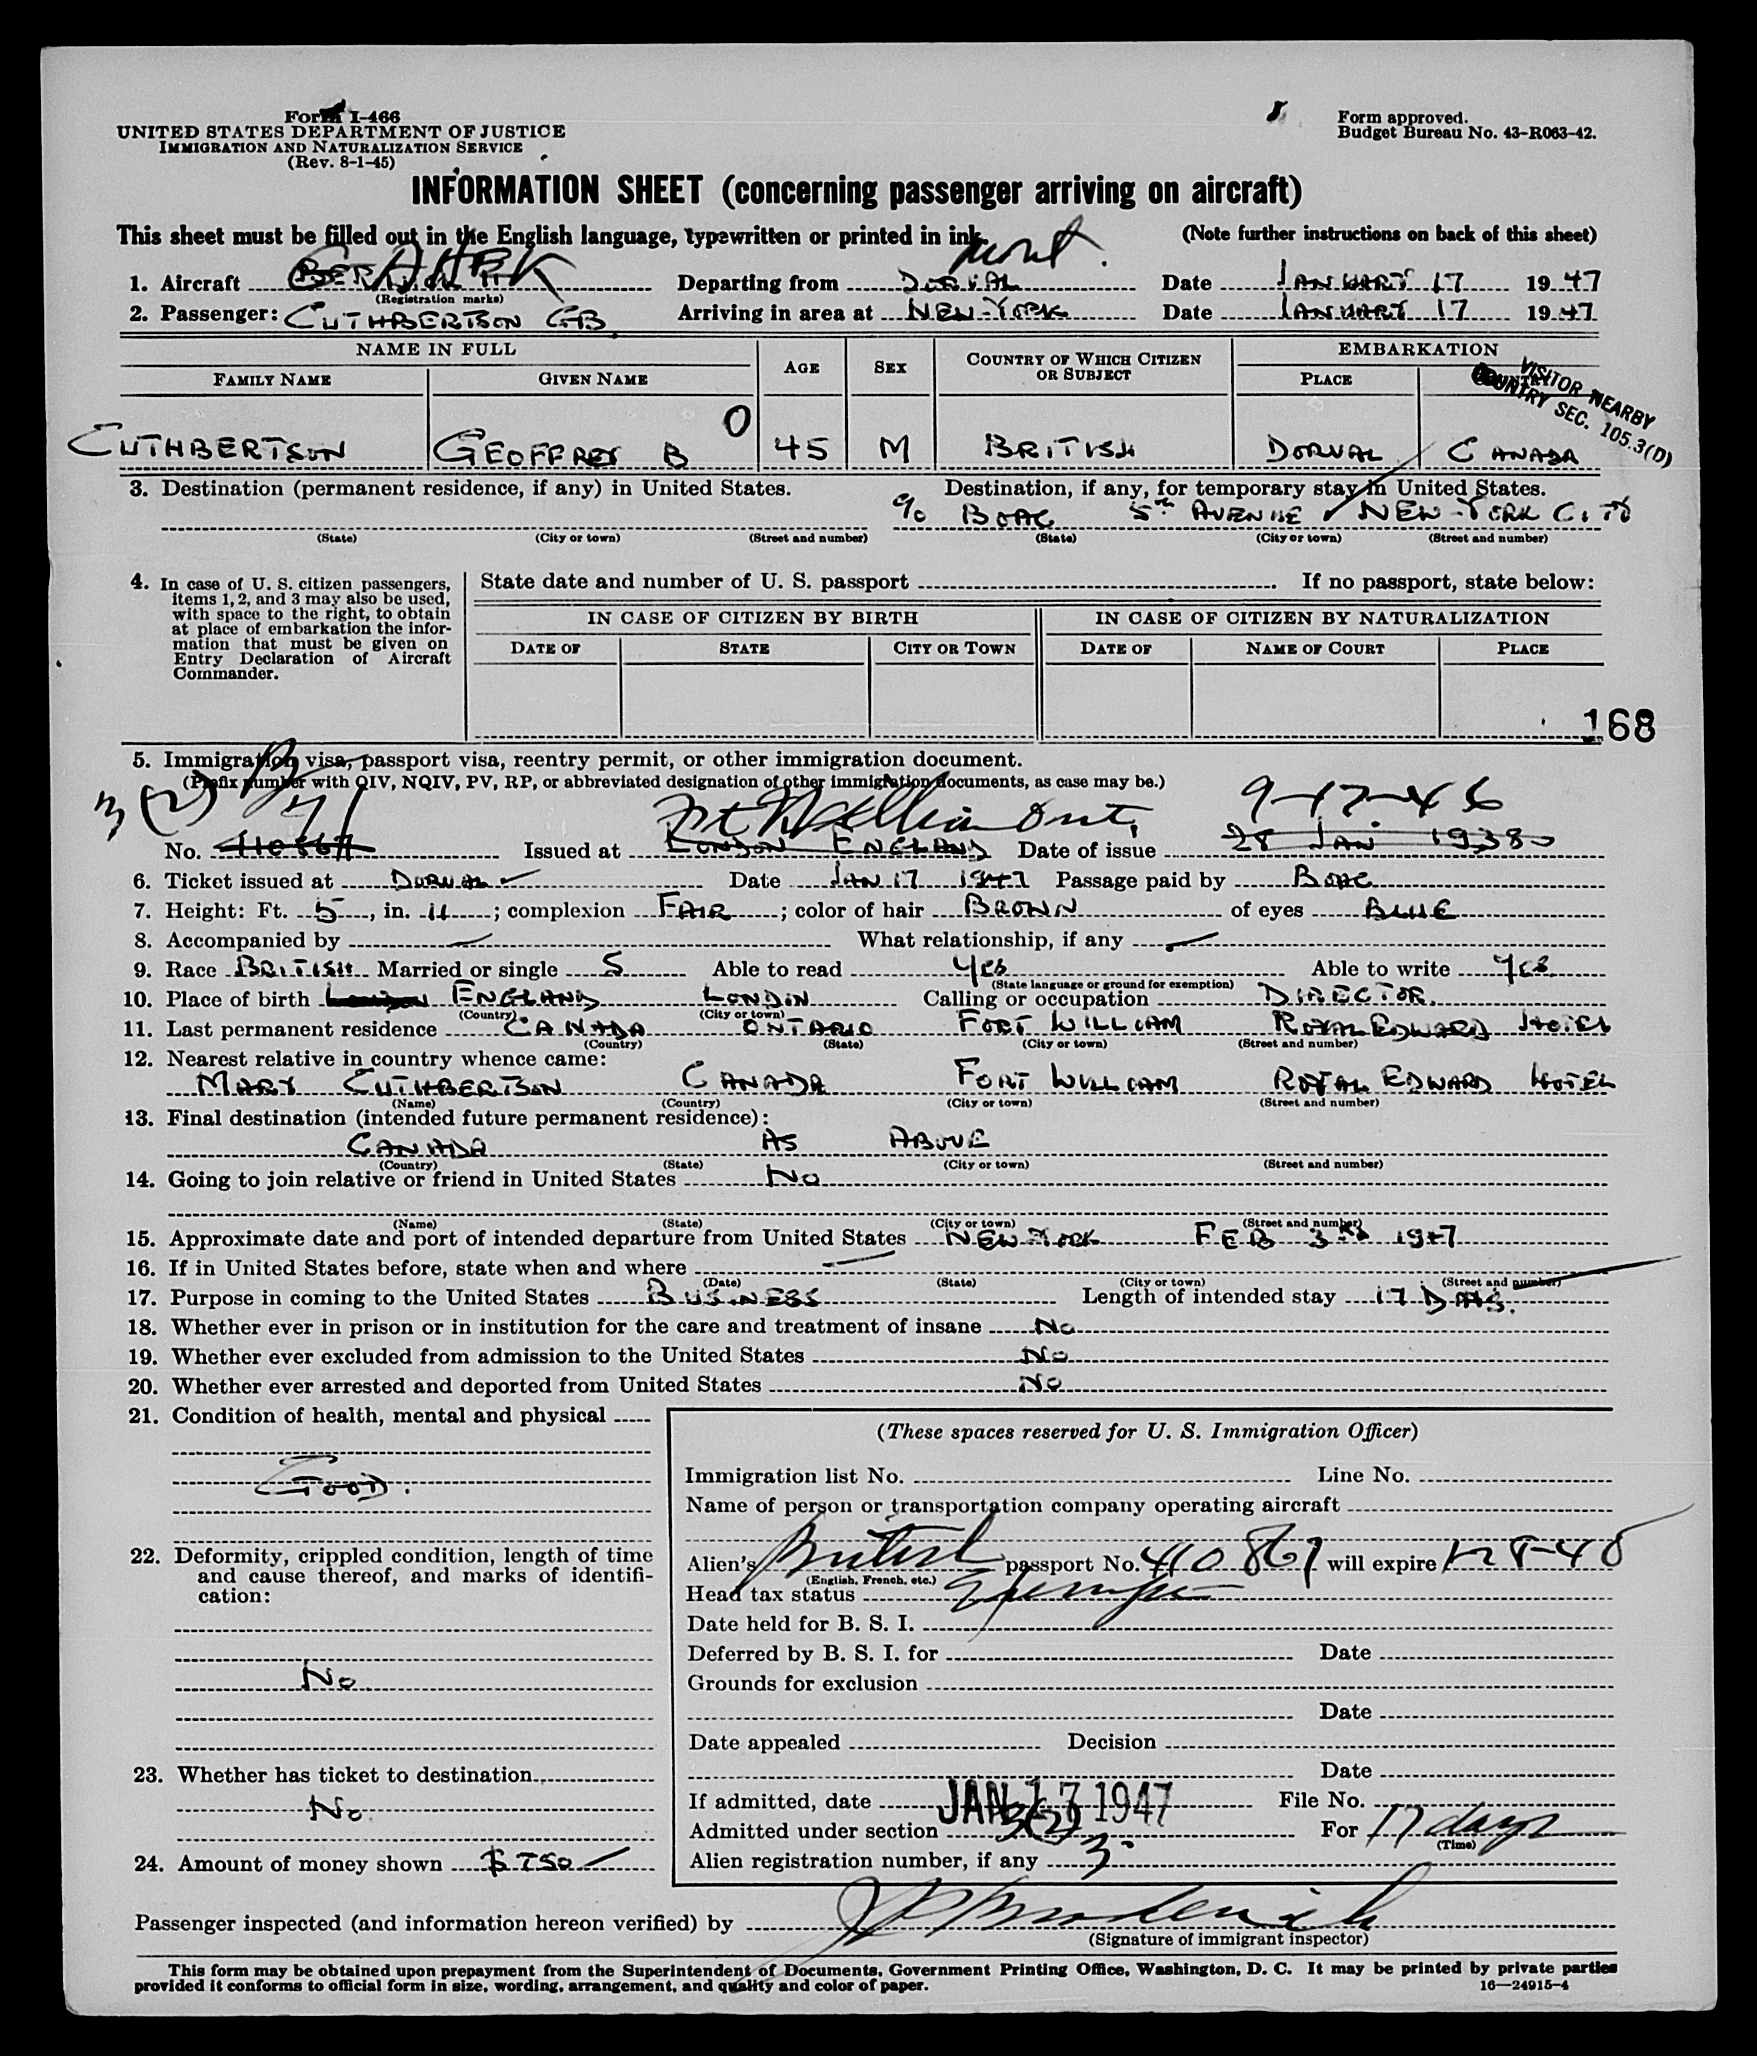 Form I-466
UNITED STATES DEPARTMENT OF JUSTICE
IMMIGRATION AND NATURALIZATION SERVICE
(Rev. 8-1-45)
Form approved.
Budget Bureau No. 43-R063-42.
INFORMATION SHEET (concerning passenger arriving on aircraft)
This sheet must be filled out in the English language, typewritten or printed in ink.
(Note further instructions on back of this sheet)
mont.
1. Aircraft G AHBK Departing from DORVAL Date JANUARY 17 1947
(Registration marks)
2. Passenger: CUTHBERTSON GB. Arriving in area at NEW-YORK Date JANUARY 17 1947
NAME IN FULL AGE SEX COUNTRY OF WHICH CITIZEN OR SUBJECT EMBARKATION
FAMILY NAME GIVEN NAME PLACE COUNTRY
VISITOR NEARBY
COUNTRY SEC. 105.3(D)
0
CUTHBERTSON GEOFFREY B 45 M BRITISH DORVAL CANADA
3. Destination (permanent residence, if any) in United States. Destination, if any, for temporary stay in United States.
% BOAC 5th AVENUE NEW-YORK CITY
(State) (City or town) (Street and number) (State) (City or town) (Street and number)
4. In case of U. S. citizen passengers, items 1, 2, and 3 may also be used, with space to the right, to obtain at place of embarkation the information that must be given on Entry Declaration of Aircraft Commander.
State date and number of U. S. passport If no passport, state below:
IN CASE OF CITIZEN BY BIRTH IN CASE OF CITIZEN BY NATURALIZATION
DATE OF STATE CITY OR TOWN DATE OF NAME OF COURT PLACE
168
5. Immigration visa, passport visa, reentry permit, or other immigration document.
(Prefix number with QIV, NQIV, PV, RP, or abbreviated designation of other immigration documents, as case may be.)
3 (2) Ft William Ont. 9-17-46
No. 410867 Issued at LONDON ENGLAND Date of issue 28 JAN 1938
6. Ticket issued at DORVAL Date JAN 17 1947 Passage paid by BOAC
7. Height: Ft. 5, in. 11; complexion FAIR; color of hair BROWN of eyes BLUE
8. Accompanied by What relationship, if any
9. Race BRITISH Married or single S Able to read Yes Able to write Yes
(State language or ground for exemption)
10. Place of birth London ENGLAND LONDON Calling or occupation DIRECTOR.
(Country) (City or town)
11. Last permanent residence CANADA ONTARIO FORT WILLIAM ROYAL EDWARD HOTEL
(Country) (State) (City or town) (Street and number)
12. Nearest relative in country whence came:
MARY CUTHBERTSON CANADA FORT WILLIAM ROYAL EDWARD HOTEL
(Name) (Country) (City or town) (Street and number)
13. Final destination (intended future permanent residence):
CANADA AS ABOVE
(Country) (State) (City or town) (Street and number)
14. Going to join relative or friend in United States No
(Name) (State) (City or town) (Street and number)
15. Approximate date and port of intended departure from United States NEW YORK FEB 3rd 1947
16. If in United States before, state when and where
(Date) (State) (City or town) (Street and number)
17. Purpose in coming to the United States BUSINESS Length of intended stay 17 DAYS.
18. Whether ever in prison or in institution for the care and treatment of insane No
19. Whether ever excluded from admission to the United States No
20. Whether ever arrested and deported from United States No
21. Condition of health, mental and physical
GOOD.
22. Deformity, crippled condition, length of time and cause thereof, and marks of identification:
No
23. Whether has ticket to destination
No
24. Amount of money shown $750
(These spaces reserved for U. S. Immigration Officer)
Immigration list No. Line No.
Name of person or transportation company operating aircraft
Alien's British passport No. 410867 will expire 1-28-48
(English, French, etc.)
Head tax status Exempt
Date held for B. S. I.
Deferred by B. S. I. for Date
Grounds for exclusion
Date
Date appealed Decision
Date
If admitted, date JAN 17 1947 File No.
Admitted under section 3(2) For 17 days
(Time)
Alien registration number, if any 3.
Passenger inspected (and information hereon verified) by
(Signature of immigrant inspector)
This form may be obtained upon prepayment from the Superintendent of Documents, Government Printing Office, Washington, D. C. It may be printed by private parties
provided it conforms to official form in size, wording, arrangement, and quality and color of paper.
16—24915-4